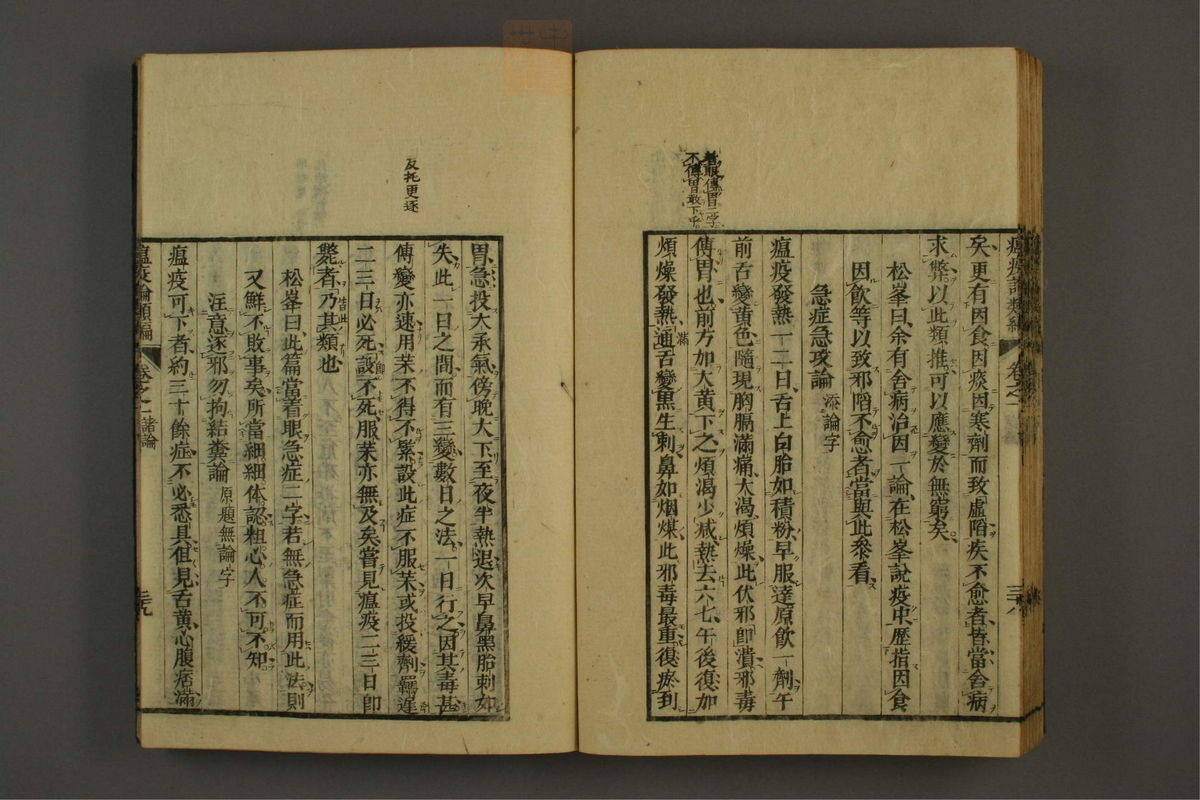 着眼傳胃二字
不傳胃敢下乎
矣更有因食因痰因寒劑而致虛陷疾不愈者皆當舍病
求弊以此類推可以應變於無窮矣
松峯曰余有舍病治因一論在松峯說疫中歷指因食
因飲等以致邪陷不愈者當與此參看
急症急攻論 添論字
瘟疫發熱一二日舌上白胎如積粉早服達原飲一劑午
前舌變黃色隨現胸膈滿痛大渴煩燥此伏邪卽潰邪毒
傳胃也前方加大黃下之煩渴少减熱去六七午後復加
煩燥發熱通舌變黑生刺鼻如烟煤此邪毒最重復瘀到
反托更逐
胃急投大承氣傍晚大下至夜半熱退次早鼻黑胎刺如
失此一日之間而有三變數日之法一日行之因其毒甚
傳變亦速用茱不得不緊設此症不服茱或投緩劑羈遲
二三日必死設不死服茱亦無及矣嘗見瘟疫二三日卽
斃者乃其類也
松峯曰此篇當着眼急症二字若無急症而用此法則
又鮮不敗事矣所當細細体認粗心人不可不知
注意逐邪勿拘結糞論 原題無論字
瘟疫可下者約三十餘症不必悉具但見舌黃心腹痞滿
瘟疫論類編 卷之一 諸論